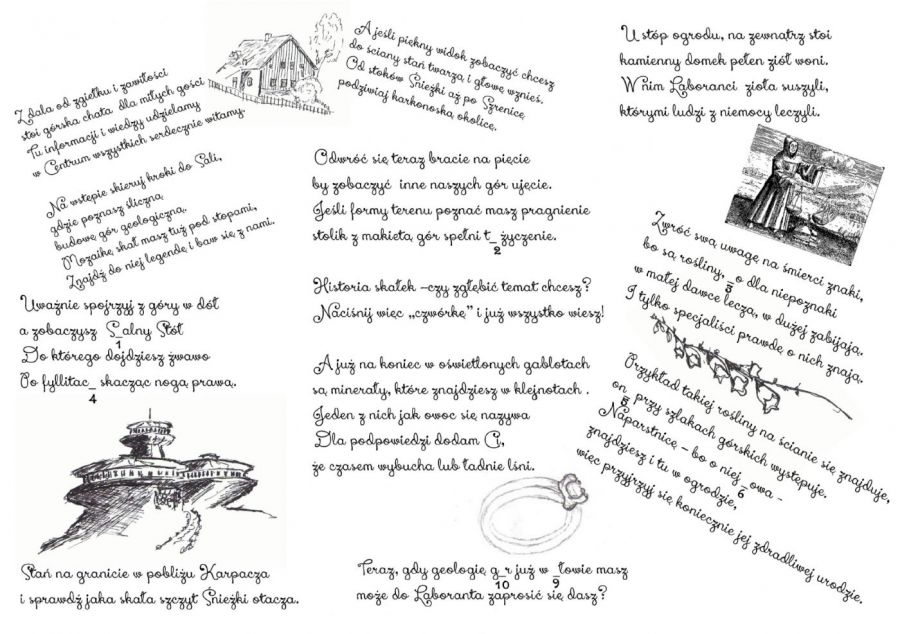 Z dala od zgiełku i zawiłości
stoi górska chata dla miłych gości
Tu informacji i wiedzy udzielamy
w Centrum wszystkich serdecznie witamy.
Na wstępie skieruj kroki do Sali,
gdzie poznasz śliczną
budowę gór geologiczną.
Mozaikę skał masz tuż pod stopami,
Znajdź do niej legendę i baw się z nami.
Uważnie spojrzyj z góry w dół
a zobaczysz S_alny Stół
1
Do którego dojdziesz żwawo
Po fyllitac_ skacząc nogą prawą.
4
Stań na granicie w pobliżu Karpacza
i sprawdź jaka skała szczyt Śnieżki otacza.
A jeśli piękny widok zobaczyć chcesz
do ściany stań twarzą i głowę wznieś.
Od stoków Śnieżki aż po Szrenicę
podziwiaj karkonoską okolicę.
Odwróć się teraz bracie na pięcie
by zobaczyć inne naszych gór ujęcie.
Jeśli formy terenu poznać masz pragnienie
stolik z makietą gór spełni t_ życzenie.
2
Historia skałek –czy zgłębić temat chcesz?
Naciśnij więc „czwórkę” i już wszystko wiesz!
A już na koniec w oświetlonych gablotach
są minerały, które znajdziesz w klejnotach .
Jeden z nich jak owoc się nazywa
Dla podpowiedzi dodam G,
że czasem wybucha lub ładnie lśni.
Teraz, gdy geologię g_r już w _łowie masz
10 9
może do Laboranta zaprosić się dasz?
U stóp ogrodu, na zewnątrz stoi
kamienny domek pełen ziół woni.
W nim Laboranci zioła suszyli,
którymi ludzi z niemocy leczyli.
Zwróć swą uwagę na śmierci znaki,
bo są rośliny, _o dla niepoznaki
w małej dawce leczą, w dużej zabijają.
I tylko specjaliści prawdę o nich znają.
Przykład takiej rośliny na ścianie się znajduje,
on_ przy szlakach górskich występuje.
8
Naparstnicę – bo o niej _owa -
6
znajdziesz i tu w ogrodzie,
więc przyjrzyj się koniecznie jej zdradliwej urodzie.